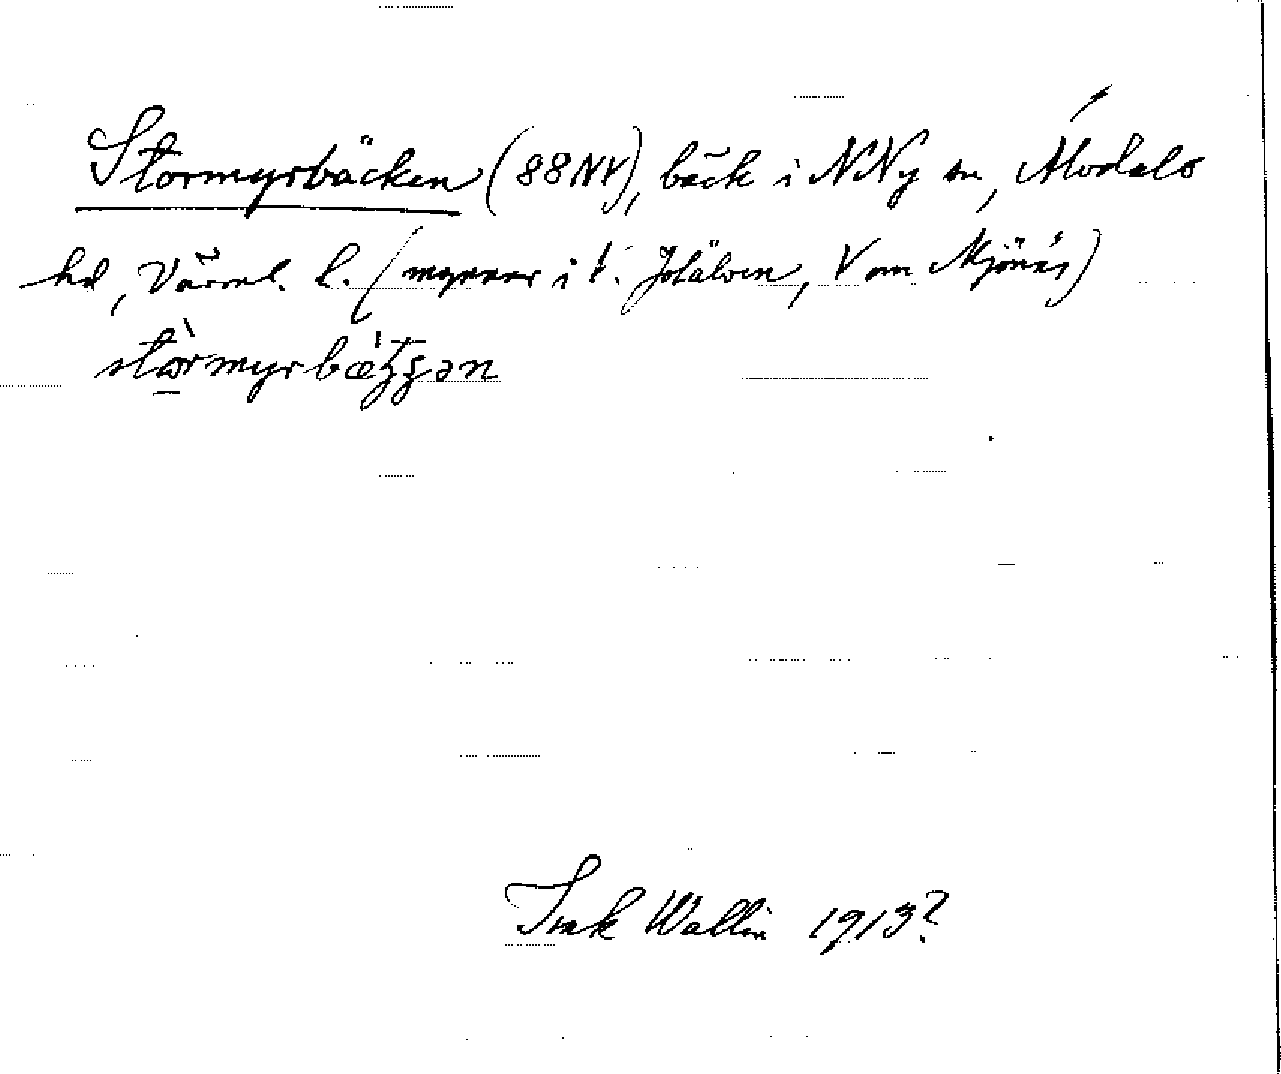 Stormyrbäcken (88NV), bäck i NNy sn, Älvdals
hd, Värml. l. (mynnar i t. Jolälven, V om Mjönäs)
stormyrbæ̀ʒʒən
Isak Wallin 1913?